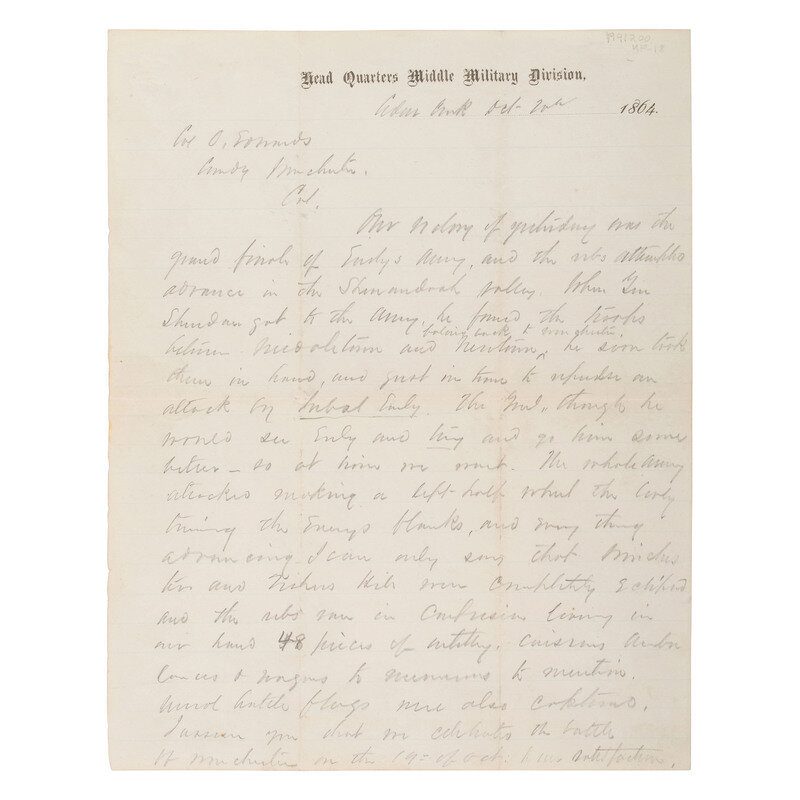 Head Quarters Middle Military Division,
Cedar Creek Oct 20th 1864.
Col O, Edwards
Comdg Winchester.
Col.
Our victory of yesterday was the
grand finale of Earlys Army, and the rebs attempted
advance in the Shenandoah valley. When Gen
Sheridan got to the Army, he found the troops
between Middletown and Newtown, falling back to Winchester, he soon took
them in hand, and just in time to repulse an
attack by Jubal Early. The Genl, though he
would see Early and and go him some
better – so at him we went. The whole Army
attacked making a left half wheel the Cavly
turning the Enemys flanks, and every thing
advancing I can only say that Winches
ter and Fishers Hill were completely Eclipsed
and the rebs ran in confusion leaving in
our hand 48 pieces of artillery, caissons Ambu
lances & wagons to numerous to mention.
battle flags were also captured.
I assure you that we celebrated the battle
of Winchester on the 19th of Oct: satisfaction.